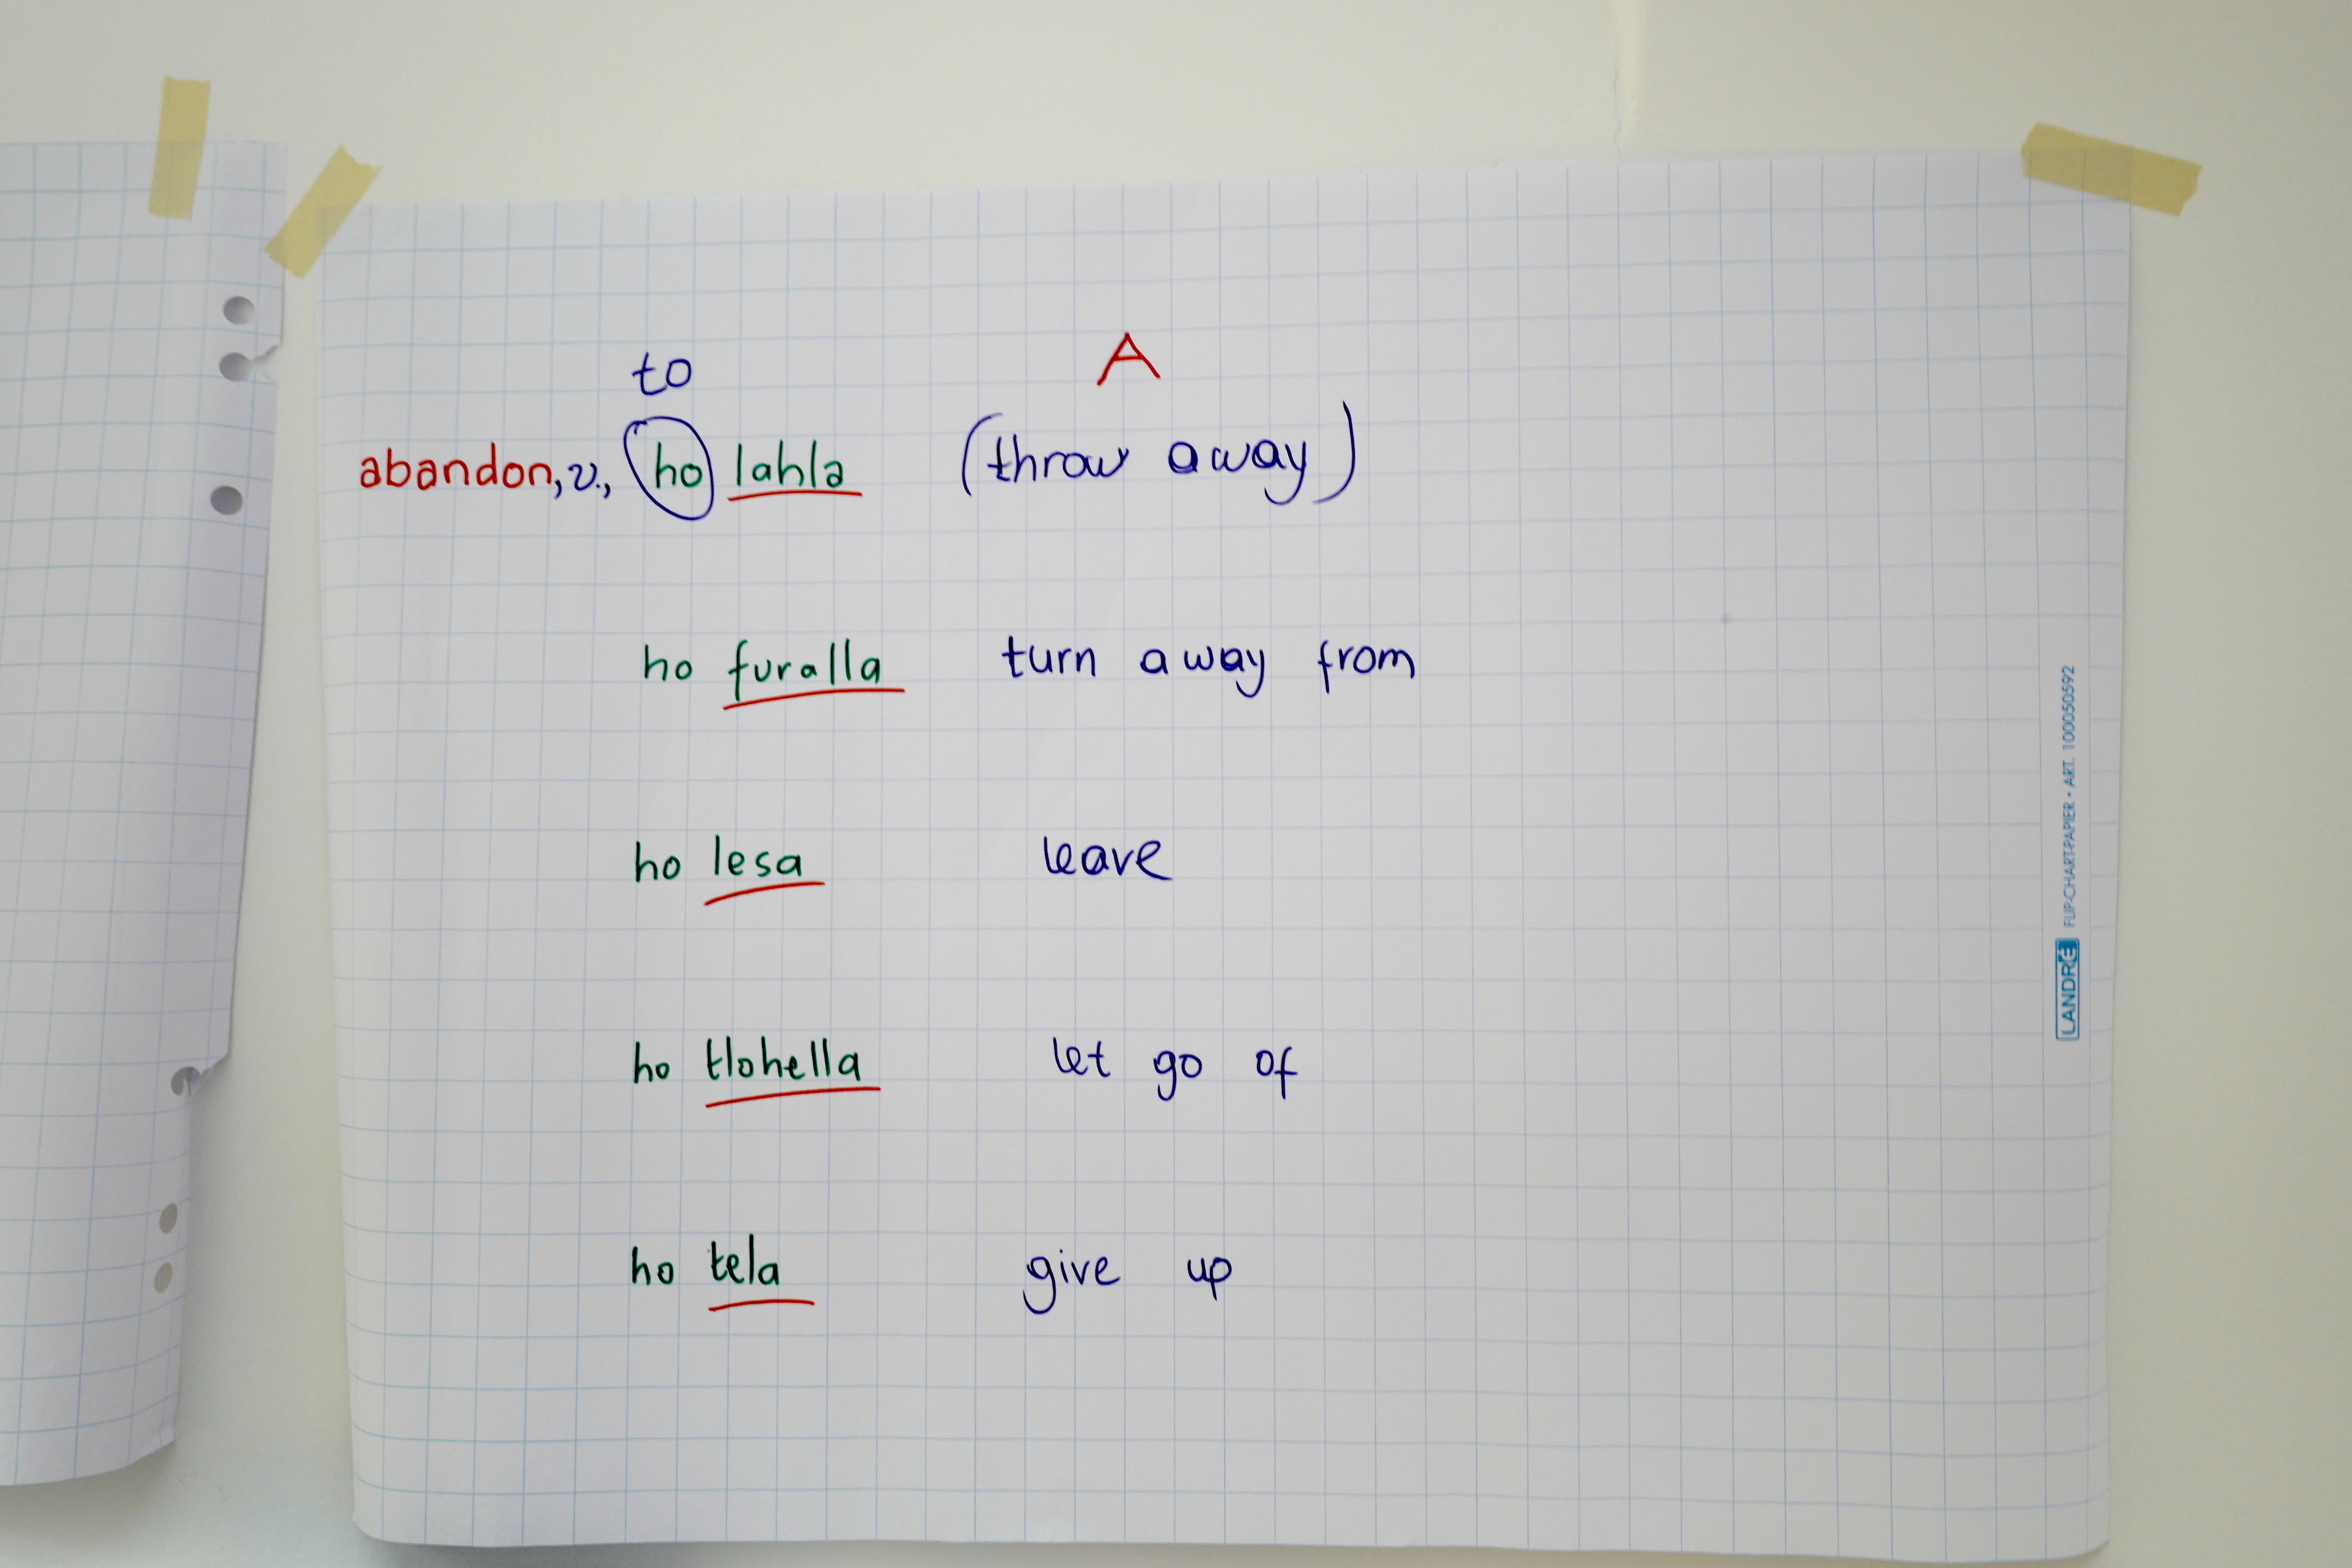 to A
abandon, v., ho lahla (throw away)
ho furalla turn away from
ho lesa leave
ho tlohella let go of
ho tela give up
LANDRÉ FLIP-CHART-PAPIER • ART. 100050592